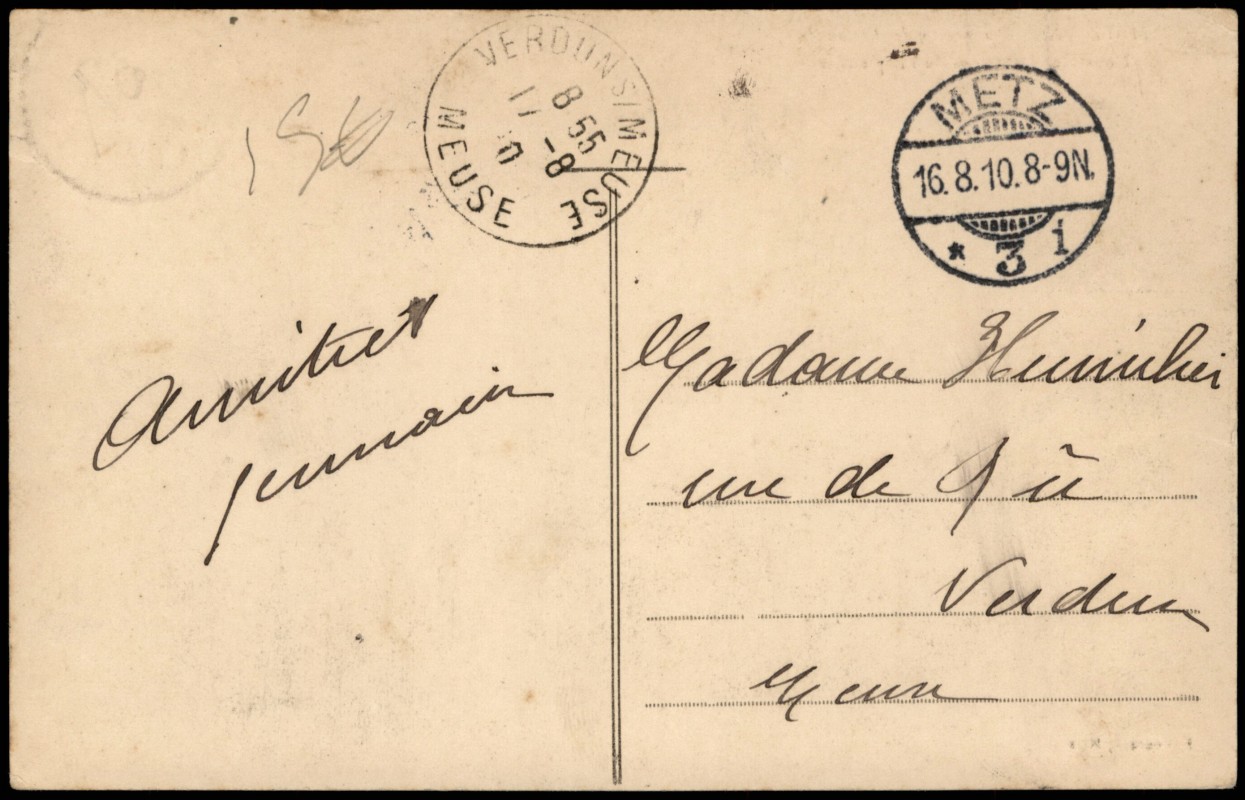 VERDUN S/MEUSE
8 55
17 -8
10
MEUSE
METZ
16.8.10.8-9N.
* 3 i
Amitiés
Madame
rue de Rû
Verdun
Meuse